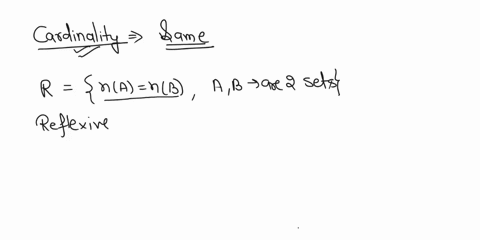 Cardinality ⇒ Same
R = { n(A) = n(B) , A, B → are 2 sets}
Reflexive